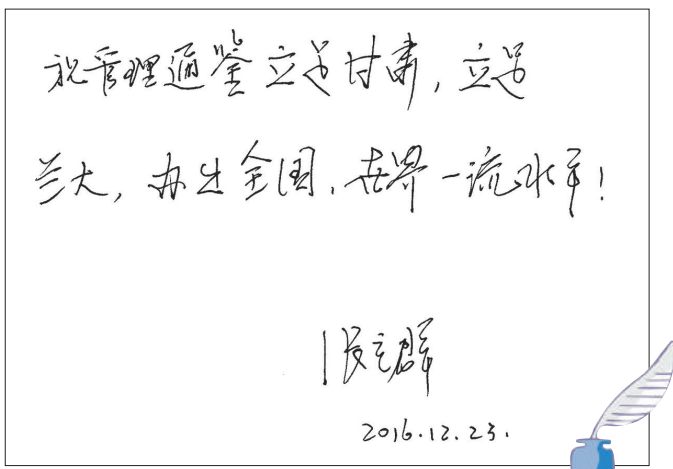 祝管理通鉴立足甘肃，立足
兰大，办出全国、世界一流水平！
张玉群
2016.12.23.